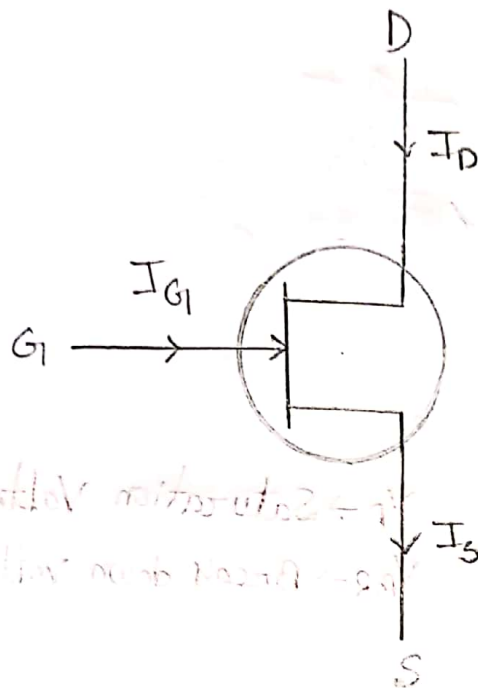 D
I_D
I_G
G
I_S
S